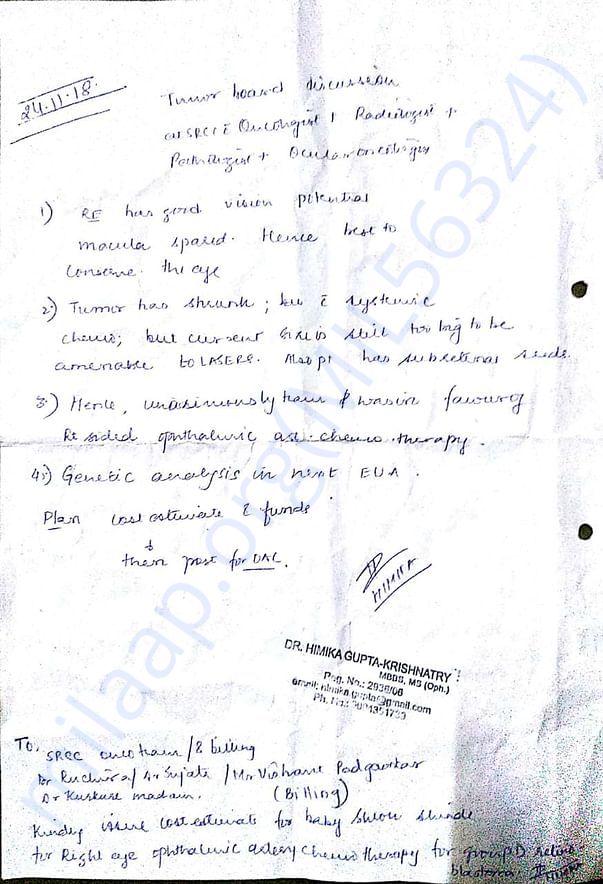 24.11.18
Tumor board discussion
at SRCC c̄ Oncologist + Radiologist +
Pathologist + Ocular oncologist
1) RE has good vision potential
macula spared. Hence best to
conserve the eye
2) Tumor has shrunk; but c̄ systemic
chemo; but current size is still too big to be
amenable to LASERS. Also pt has subretinal seeds.
3) Hence, unanimously team was in favour of
Rt sided ophthalmic art. chemotherapy.
4) Genetic analysis in next EUA.
Plan cost estimate & funds
↓
then post for OAC.
HIMIKA
DR. HIMIKA GUPTA-KRISHNATRY
MBBS, MS (Oph.)
Reg. No.: 2936/06
email: himika.gupta@gmail.com
Ph. No.:
To, SRCC onco team / & billing
Dr Ruchira / Dr Sujata / Mr Vishane Padgaonkar
Dr Kuskure madam. (Billing)
Kindly issue cost estimate for baby Shlou Shinde
for Right eye ophthalmic artery chemotherapy for group D retino-
blastoma. HIMIKA
milaap.org(MYL56324)